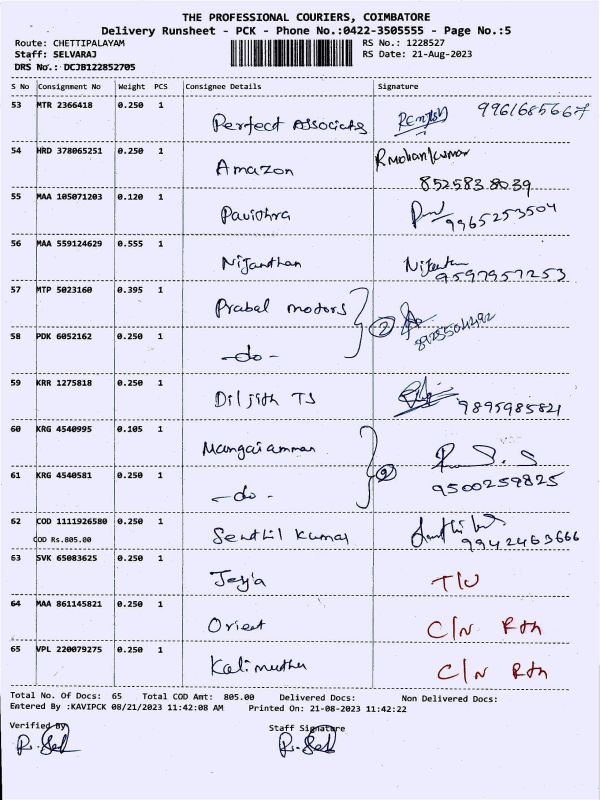 THE PROFESSIONAL COURIERS, COIMBATORE
Delivery Runsheet - PCK - Phone No.:0422-3505555 - Page No.:5
Route: CHETTIPALAYAM RS No.: 1228527
Staff: SELVARAJ RS Date: 21-Aug-2023
DRS No.: DCJB122852705
S No Consignment No Weight PCS Consignee Details Signature
53 MTR 2366418 0.250 1 Perfect Associates 9961685667
54 HRD 378065251 0.250 1 Amazon Rmohankumar
8525838039
55 MAA 105071203 0.120 1 Pavithra 9965253504
56 MAA 559124629 0.555 1 Nijanthan
9597957253
57 MTP 5023160 0.395 1 Prabal motors 2
58 PDK 6052162 0.250 1 -do-
59 KRR 1275818 0.250 1 Diljith TS 9895985821
60 KRG 4540995 0.105 1 Mangai amman 2
61 KRG 4540581 0.250 1 -do- 9500259825
62 COD 1111926580 0.250 1 Senthil Kumar
COD Rs.805.00 9942463666
63 SVK 65083625 0.250 1 Jeyia
64 MAA 861145821 0.250 1 Orient C/N Rtn
65 VPL 220079275 0.250 1 Kalimuthu C/N Rtn
Total No. Of Docs: 65 Total COD Amt: 805.00 Delivered Docs: Non Delivered Docs:
Entered By :KAVIPCK 08/21/2023 11:42:08 AM Printed On: 21-08-2023 11:42:22
Verified By Staff Signature
R. Sel R. Sel